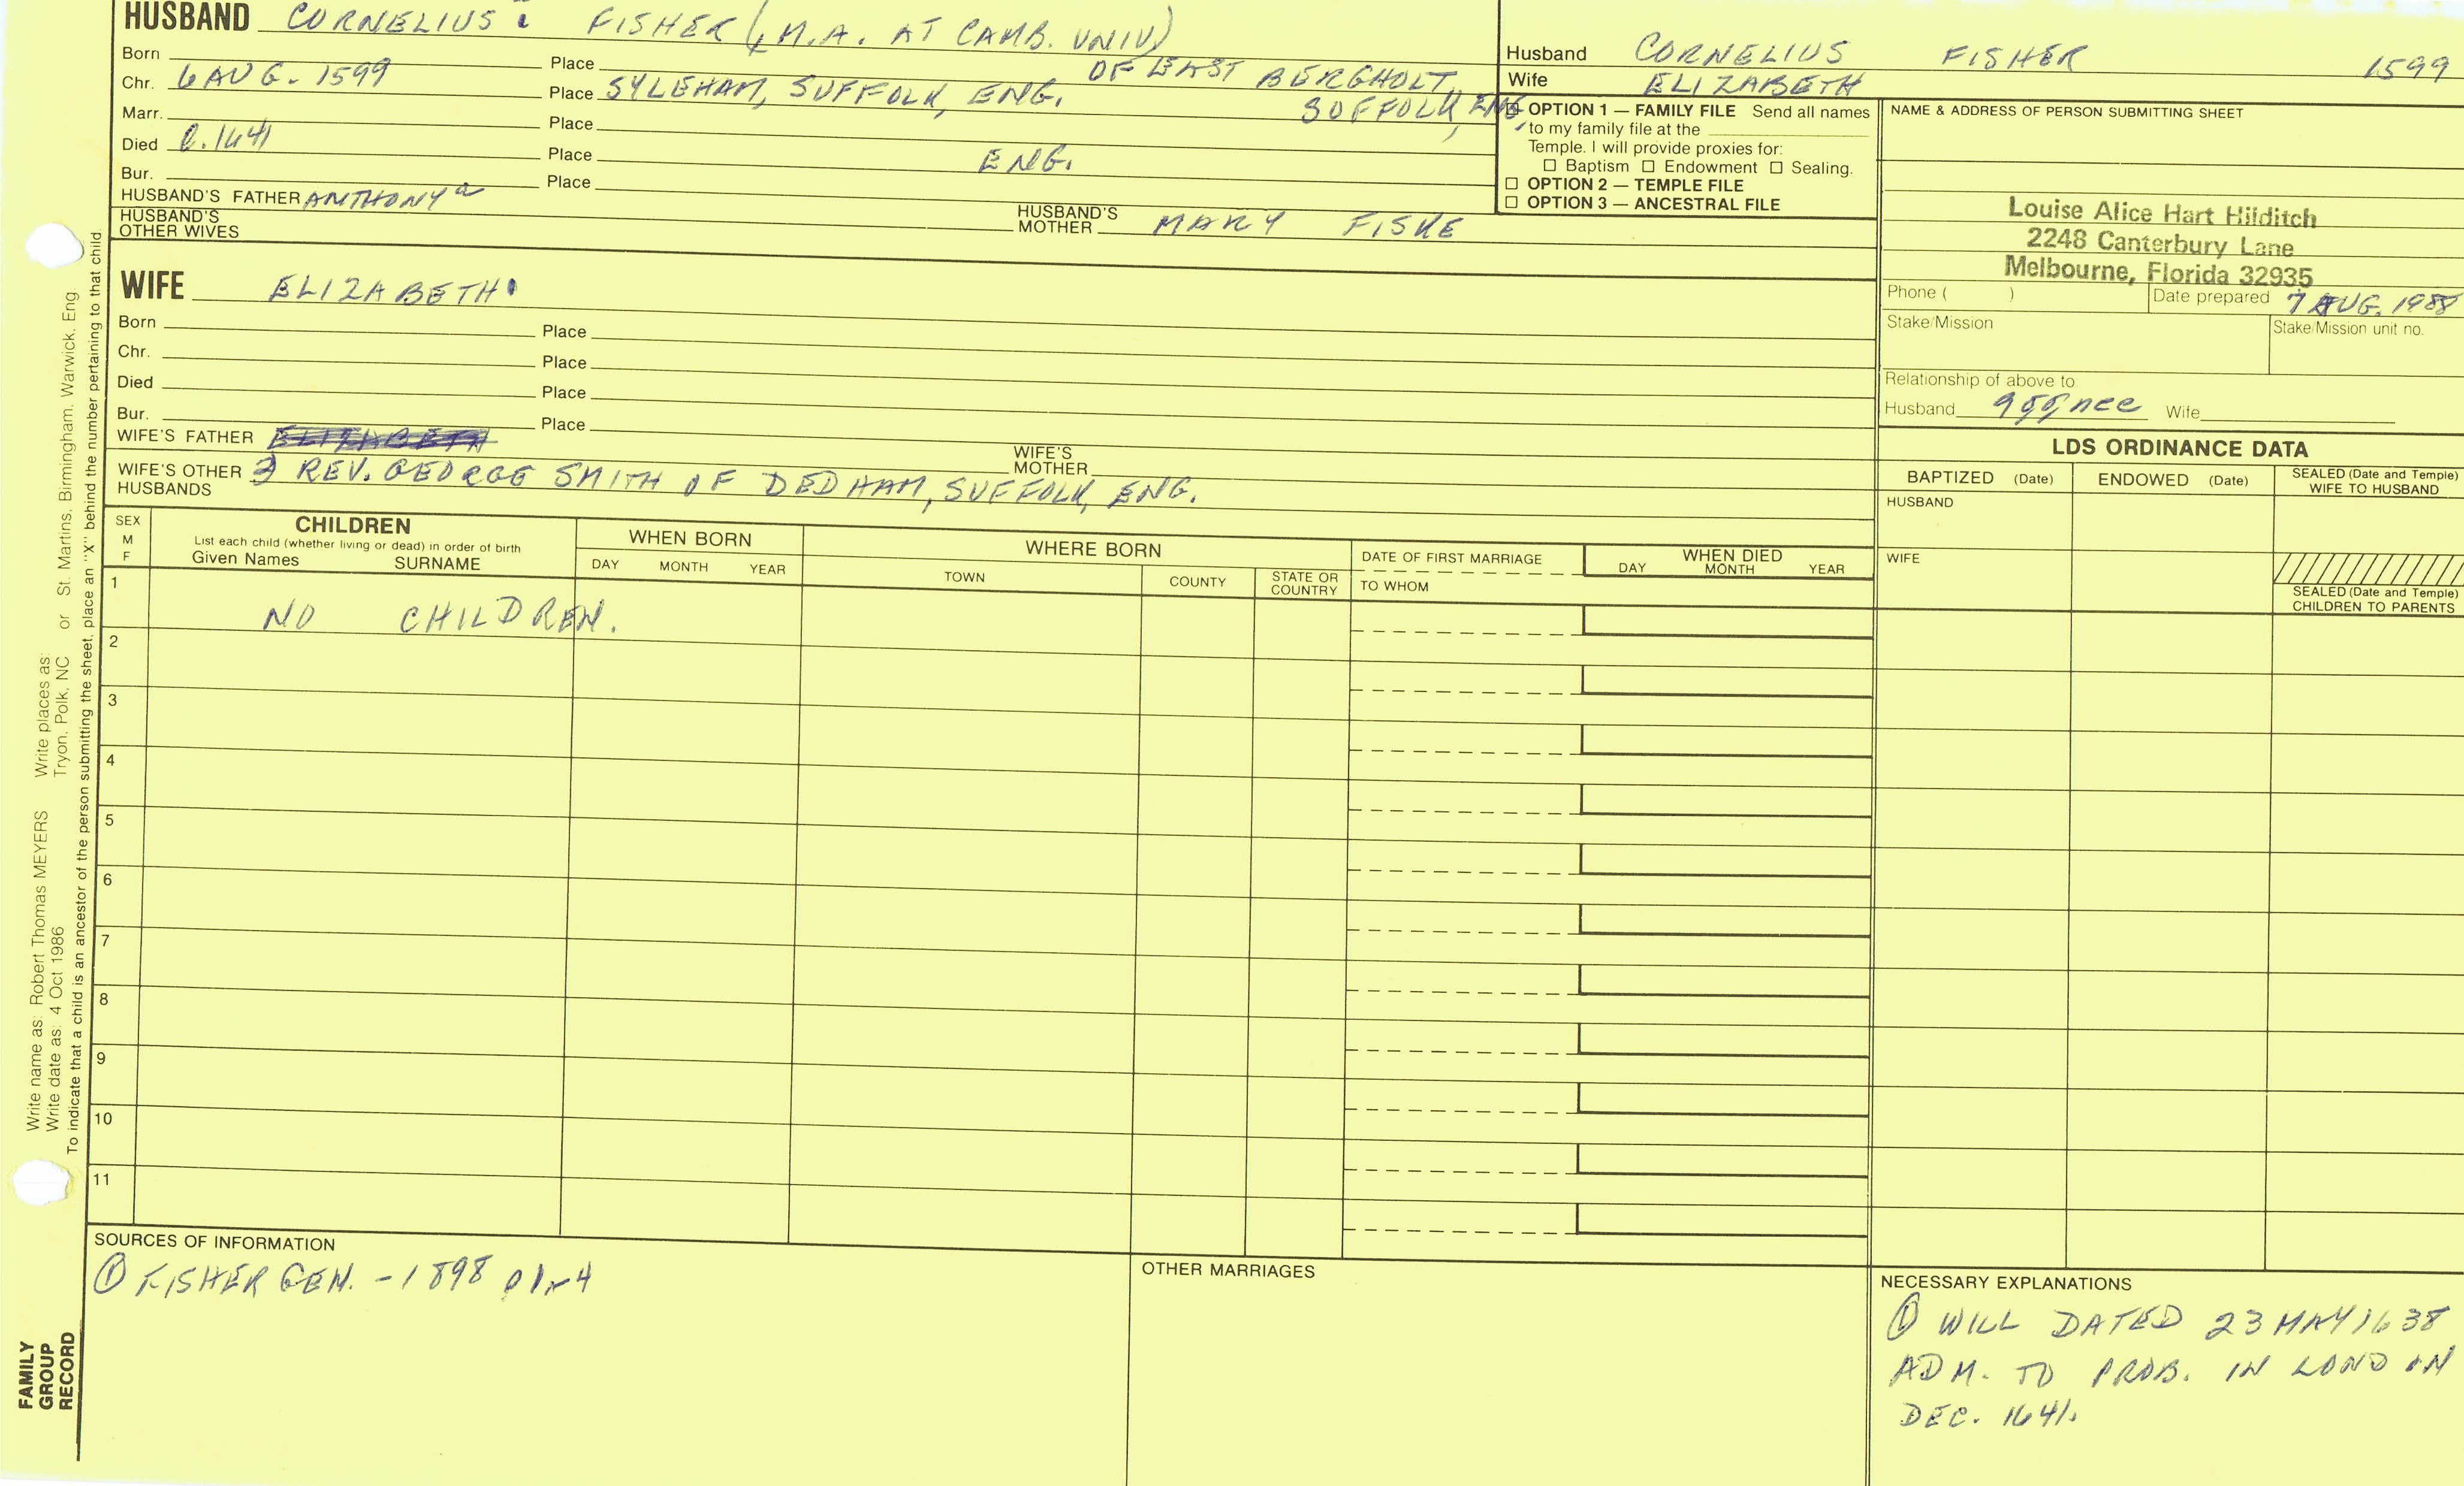 HUSBAND CORNELIUS FISHER (M.A. AT CAMB. UNIV)
OF EAST BERGHOLT,
SUFFOLK, ENG.
Born Place
Chr. 6 AUG. 1599 Place SYLEHAM, SUFFOLK, ENG.
Marr. Place
Died C.1641 Place ENG.
Bur. Place
HUSBAND'S FATHER ANTHONY
HUSBAND'S MOTHER MARY FISKE
HUSBAND'S OTHER WIVES
WIFE ELIZABETH
Born Place
Chr. Place
Died Place
Bur. Place
WIFE'S FATHER
WIFE'S MOTHER
WIFE'S OTHER HUSBANDS REV. GEORGE SMITH OF DEDHAM, SUFFOLK, ENG.
Husband CORNELIUS FISHER 1599
Wife ELIZABETH
OPTION 1 — FAMILY FILE Send all names
to my family file at the
Temple. I will provide proxies for:
☐ Baptism ☐ Endowment ☐ Sealing.
☐ OPTION 2 — TEMPLE FILE
☐ OPTION 3 — ANCESTRAL FILE
NAME & ADDRESS OF PERSON SUBMITTING SHEET
Louise Alice Hart Hilditch
2248 Canterbury Lane
Melbourne, Florida 32935
Phone ( ) Date prepared 7 AUG. 1988
Stake/Mission Stake/Mission unit no.
Relationship of above to
Husband Wife
LDS ORDINANCE DATA
BAPTIZED (Date) ENDOWED (Date) SEALED (Date and Temple) WIFE TO HUSBAND
HUSBAND
WIFE
SEALED (Date and Temple) CHILDREN TO PARENTS
SEX
M
F
CHILDREN
List each child (whether living or dead) in order of birth
Given Names SURNAME
WHEN BORN
DAY MONTH YEAR
WHERE BORN
TOWN COUNTY STATE OR COUNTRY
DATE OF FIRST MARRIAGE
TO WHOM
WHEN DIED
DAY MONTH YEAR
1 NO CHILDREN.
2
3
4
5
6
7
8
9
10
11
SOURCES OF INFORMATION
① FISHER GEN. - 1898
OTHER MARRIAGES
NECESSARY EXPLANATIONS
① WILL DATED 23 MAY 1638
ADM. TO PROB. IN LOND IN
DEC. 1641.
Write name as: Robert Thomas MEYERS Write places as:
Write date as: 4 Oct 1986 Tryon, Polk, NC or St. Martins, Birmingham, Warwick, Eng
To indicate that a child is an ancestor of the person submitting the sheet, place an "X" behind the number pertaining to that child.
FAMILY
GROUP
RECORD